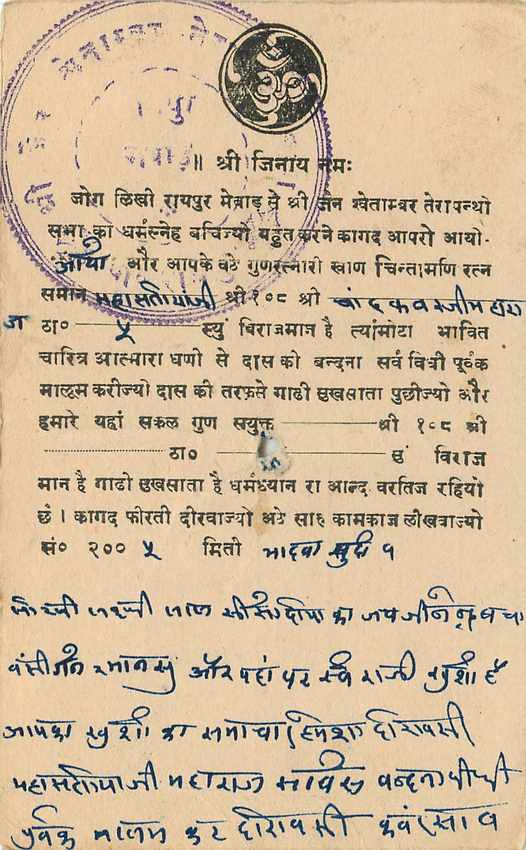 ॥ श्री जिनांय नमः
जोग लिखी रायपुर मेवाड़ से श्री जैन श्वेताम्बर तेरापन्थी
सभा का धर्मस्नेह बचिज्यो बहुत करने कागद आपरो आयो.
और आपके वठे गुणरत्नारी खाण चिन्तामणि रत्न
समान महासतीयांजी श्री १०८ श्री चांदकवरजीम हारा
ज ठा० ५ स्युं विराजमान है त्यांमोटा भावित
चारित्र आत्मारा घणो से दास की बन्दना सर्व विधी पूर्वक
मालूम करीज्यो दास की तरफसे गाढी सुखसाता पुछीज्यो और
हमारे यहां सकल गुण सयुक्त श्री १०८ श्री
ठा० सुं विराज
मान है गाढो सुखसाता है धर्मध्यान रा आन्द वरतिज रहियो
छं । कागद फीरती दीरवाज्यो अठे सारु कामकाज लीखवाज्यो
सं० २०० ५ मिती भादवा सुदी १
का जय जीनेन्द्र बचा
और यहां पर सब राजी खुशी है
आपका खुशी का समाचार हमेशा दीरावसी
महासतीयाजी महाराज वन्दना वीधी
पुर्वक मालम कर दीरावसी कवंरसाव